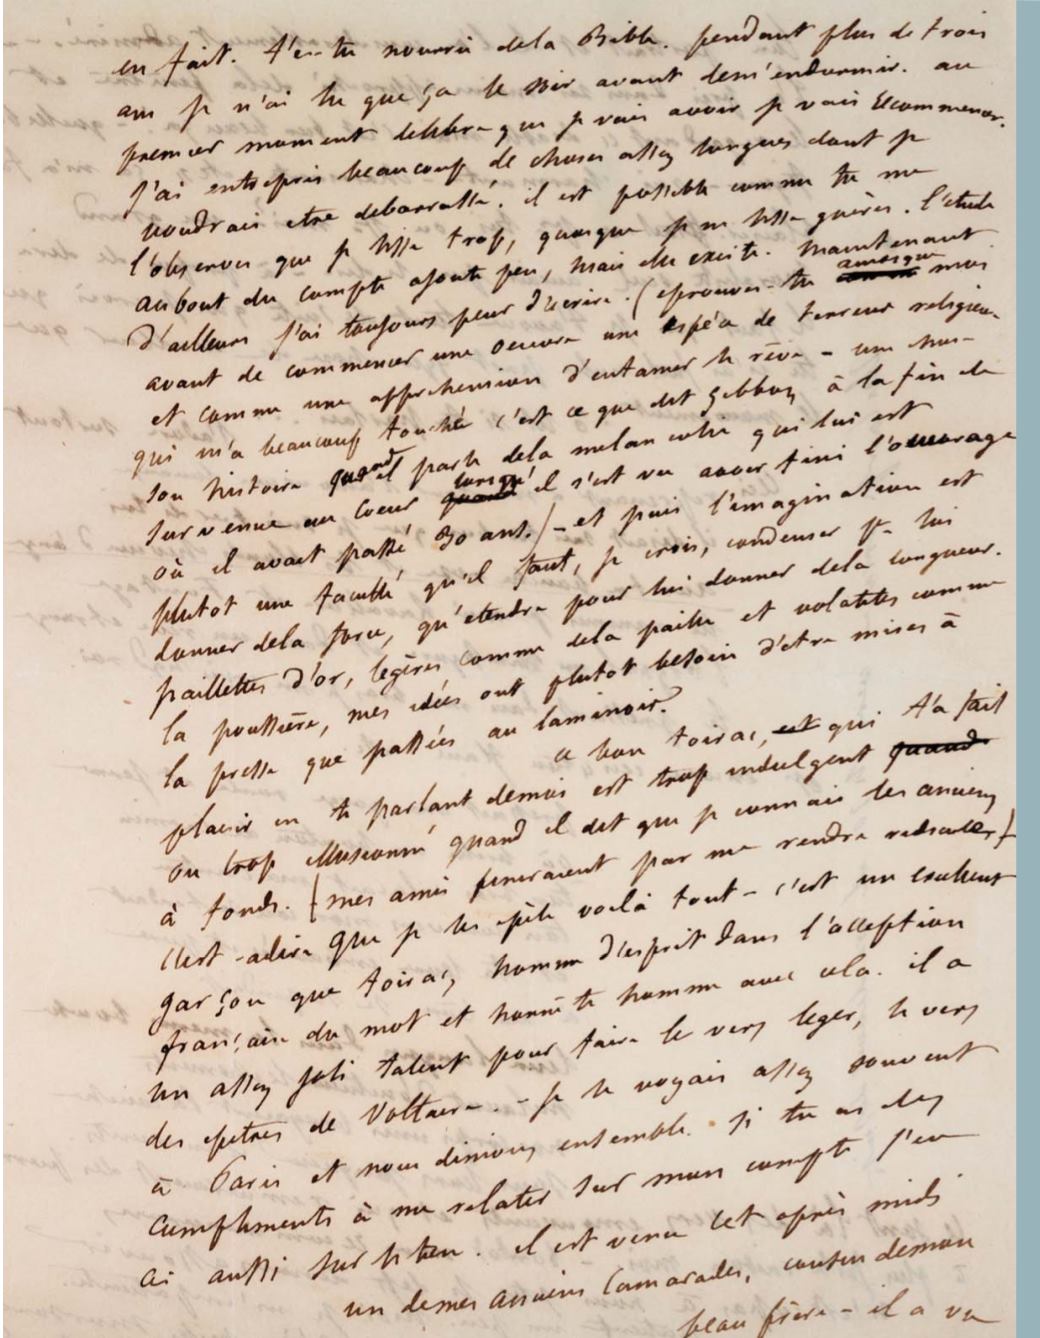 en fait. t'es-tu nourri dela Bible. pendant plus de trois
ans je n'ai lu que ça le soir avant dem'endormir. au
premier moment delibre que je vais avoir je vais recommencer.
J'ai entrepris beaucoup de choses assez longues dont je
voudrais etre debarrassé. il est possible comme tu me
l'observes que je lise trop, quoique je ne lise guères. l'etude
au bout du compte ajoute peu, mais elle excite. Maintenant
d'ailleurs j'ai toujours peur d'écrire. (eprouves-tu ainsi que moi
avant de commencer une oeuvre une espèce de terreur religieuse
et comme une apprehension d'entamer le rêve - une chose
qui m'a beaucoup touché c'est ce que dit Gibbon à la fin de
son histoire quand il parle dela melancolie qui lui est
survenue au coeur quand lorsqu'il s'est vu avoir fini l'ouvrage
où il avait passé 30 ans.) - et puis l'imagination est
plutot une faculté qu'il faut, je crois, condenser pr lui
donner dela force, qu'etendre pour lui donner dela longueur.
paillettes d'or, legères comme dela paille et volatiles comme
la poussière, mes idées ont plutot besoin d'etre mises à
la presse que passées au laminoir.
ce bon toirac, est qui t'a fait
plaisir en te parlant demoi est trop indulgent quand
ou trop illusionné quand il dit que je connais les anciens
à fonds. (mes amis finiraient par me rendre ridicule)
c'est-adire que je les épèle voilà tout - c'est un excellent
garçon que toirac, homme d'esprit dans l'acception
française du mot et honnête homme avec cela. il a
un assez joli talent pour faire le vers leger, le vers
des epitres de Voltaire. - je le voyais assez souvent
à Paris et nous dinions ensemble. si tu as des
compliments à me relater sur mon compte j'en
ai aussi sur le tien. il est venu cet après midi
un demes anciens camarades, cousin demon
beau frère - il a vu